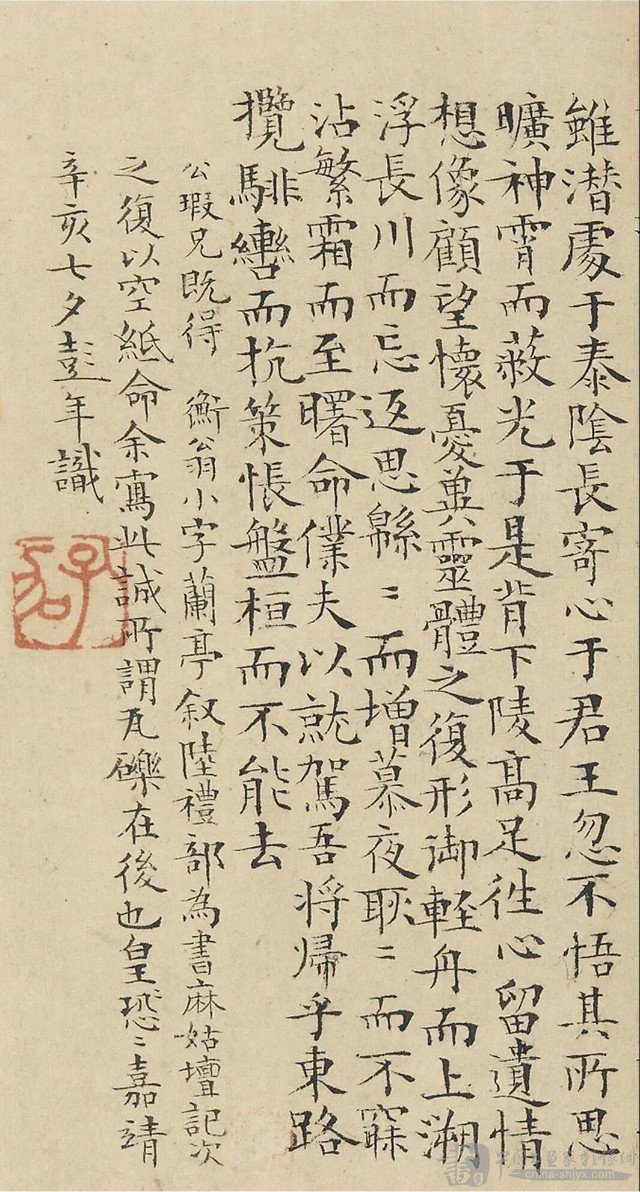 雖潛處于泰陰長寄心于君王忽不悟其所思
曠神霄而蔽光于是背下陵高足往心留遺情
想像顧望懷憂冀靈體之復形御輕舟而上溯
浮長川而忘返思緜〻而增慕夜耿〻而不寐
沾繁霜而至曙命僕夫以就駕吾將歸乎東路
攬騑轡而抗策悵盤桓而不能去
公瑕兄既得 衡翁小字蘭亭叙陸禮部為書麻姑壇記次
之復以空紙命余寫此誠所謂瓦礫在後也皇恐〻嘉靖
辛亥七夕彭年識
china-shjyx.com